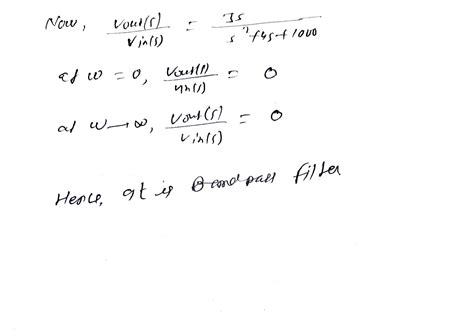 Now, Vout(s)/Vin(s) = 3s/s²+4s+1000
at w = 0, Vout(s)/Vin(s) = 0
at w → ∞, Vout(s)/Vin(s) = 0
Hence, It is Bandpass filter